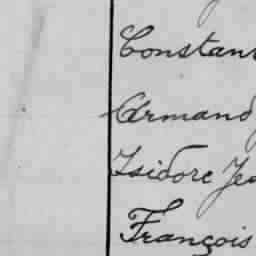 Constant
Armand
Isidore Jea
François